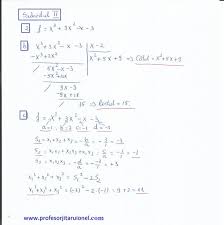 Subiectul II
a) f = x³ + 3x² - x - 3
b) x³ + 3x² - x - 3 | x - 2
-x³ + 2x² | x² + 5x + 9 => Câtul = x² + 5x + 9
/ 5x² - x - 3
-5x² + 10x
/ 9x - 3
-9x + 18
/ 15 => Restul = 15
c) f = x³ + 3x² - x - 3
a = 1 b = 3 c = -1 d = -3
S₁ = x₁ + x₂ + x₃ = -b/a = -3/1 = -3
S₂ = x₁x₂ + x₁x₃ + x₂x₃ = c/a = -1/1 = -1
S₃ = x₁x₂x₃ = -d/a = -(-3)/1 = 3
x₁² + x₂² + x₃² = S₁² - 2S₂
x₁² + x₂² + x₃² = (-3)² - 2·(-1) = 9 + 2 = 11
www.profesorjitaruionel.com